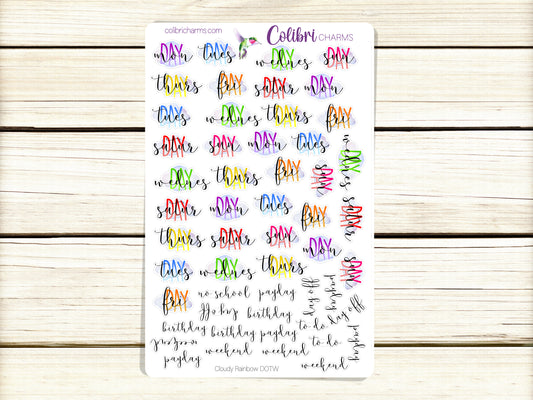 colibricharms.com
Colibri CHARMS
monDAY tuesDAY wednesDAY sunDAY
thursDAY friDAY saturDAY monDAY
tuesDAY wednesDAY thursDAY friDAY
saturDAY sunDAY monDAY tuesDAY wednesDAY
wednesDAY thursDAY friDAY sunDAY
saturDAY monDAY tuesDAY friDAY saturDAY
thursDAY saturDAY sunDAY monDAY
tuesDAY wednesDAY thursDAY sunDAY
friDAY no school payday day off
birthday day off
birthday birthday payday to do to do
payday weekend weekend
Cloudy Rainbow DOTW